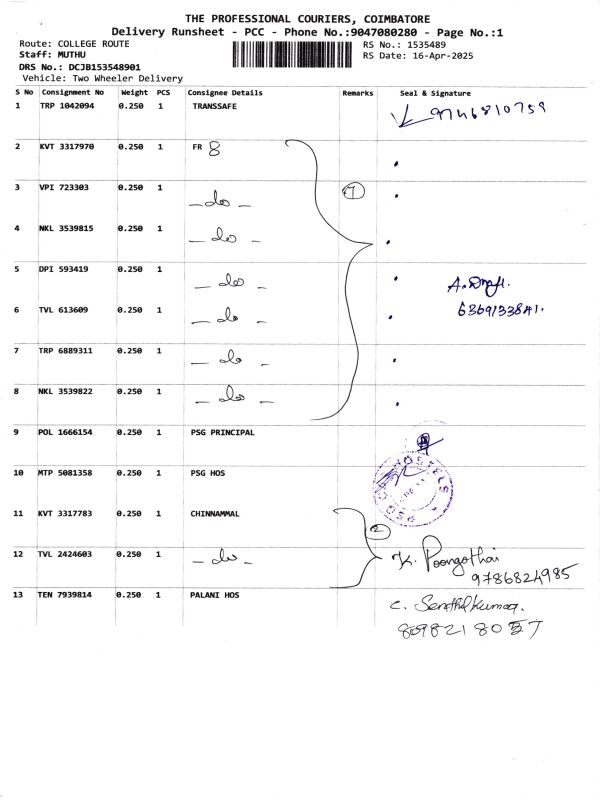 THE PROFESSIONAL COURIERS, COIMBATORE
Delivery Runsheet - PCC - Phone No.:9047080280 - Page No.:1
Route: COLLEGE ROUTE
RS No.: 1535489
Staff: MUTHU
RS Date: 16-Apr-2025
DRS No.: DCJB153548901
Vehicle: Two Wheeler Delivery
S No Consignment No Weight PCS Consignee Details Remarks Seal & Signature
1 TRP 1042094 0.250 1 TRANSSAFE 9746810759
2 KVT 3317970 0.250 1 FR 8
3 VPI 723303 0.250 1 - do - 7
4 NKL 3539815 0.250 1 - do -
5 DPI 593419 0.250 1 - do -
6 TVL 613609 0.250 1 - do - 6369133841.
7 TRP 6889311 0.250 1 - do -
8 NKL 3539822 0.250 1 - do -
9 POL 1666154 0.250 1 PSG PRINCIPAL
10 MTP 5081358 0.250 1 PSG HOS
HOSTELS
11 KVT 3317783 0.250 1 CHINNAMMAL 2
12 TVL 2424603 0.250 1 - do - K. Poongothai
9786824985
13 TEN 7939814 0.250 1 PALANI HOS C. Senthilkumar.
8098218057